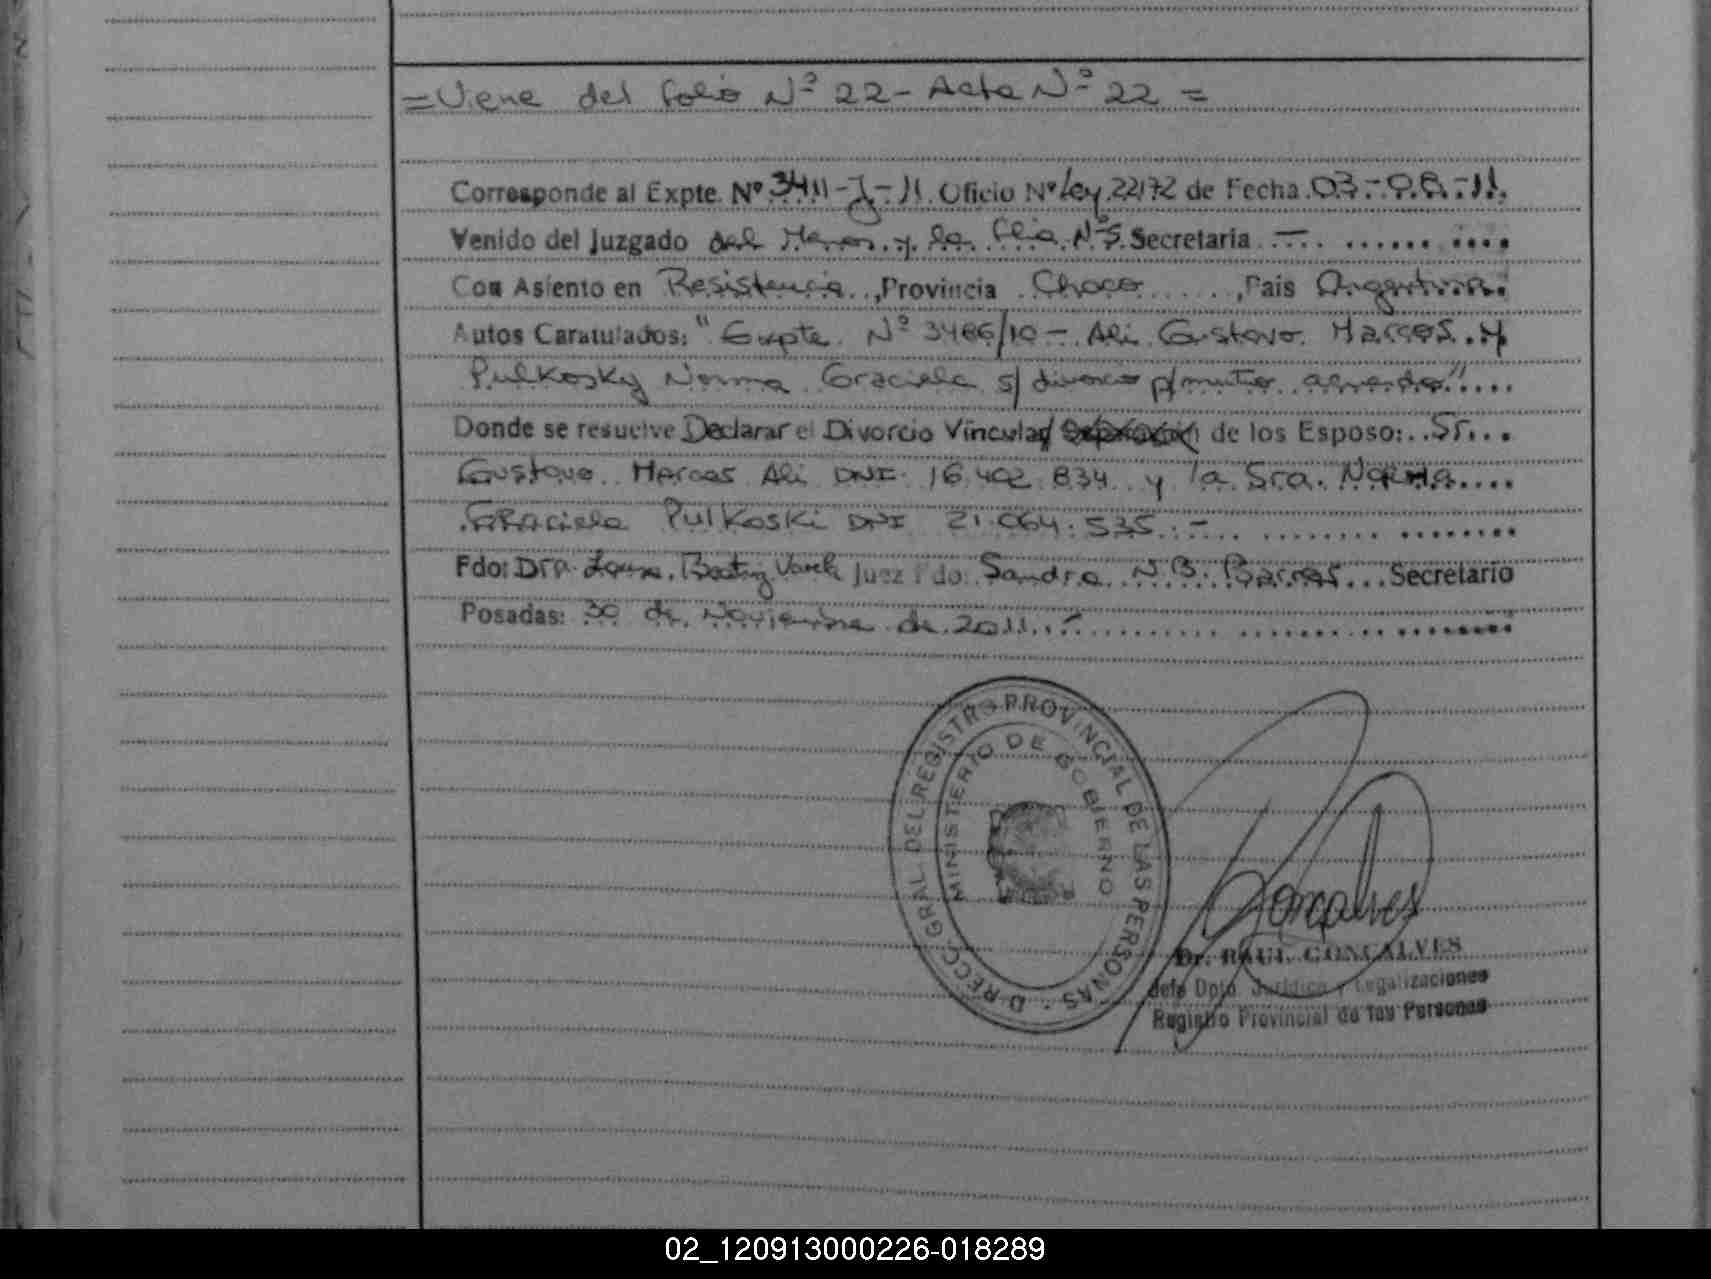 =Viene del folio Nº 22 - Acta Nº 22 =
Corresponde al Expte. Nº 3411-J-11. Oficio Nº Ley 22172 de Fecha 03-08-11.
Venido del Juzgado del Menor y la Flia Nº5. Secretaria . - .
Con Asiento en Resistencia ., Provincia . Chaco ., Pais Argentina.
Autos Caratulados: "Expte. Nº 3466/10 - Ali Gustavo Marcos y
Pulkosky Norma Graciela s/ divorcio p/mutuo acuerdo"
Donde se resuelve Declarar el Divorcio Vincular de los Esposo: Sr.
Gustavo Marcos Ali DNI 16.402.834 y la Sra. Norma
Graciela Pulkoski DNI 21.064.535.-
Fdo: Dra. Beatriz Juez Fdo: Sandra N.B. Barras Secretario
Posadas: 30 de Noviembre de 2011.-
DIRECC. GRAL. DEL REGISTRO PROVINCIAL DE LAS PERSONAS
MINISTERIO DE GOBIERNO
Goncalves
Dr. RAUL GONCALVES
Jefe Dpto. Juridico y Legalizaciones
Registro Provincial de las Personas
02_120913000226-018289